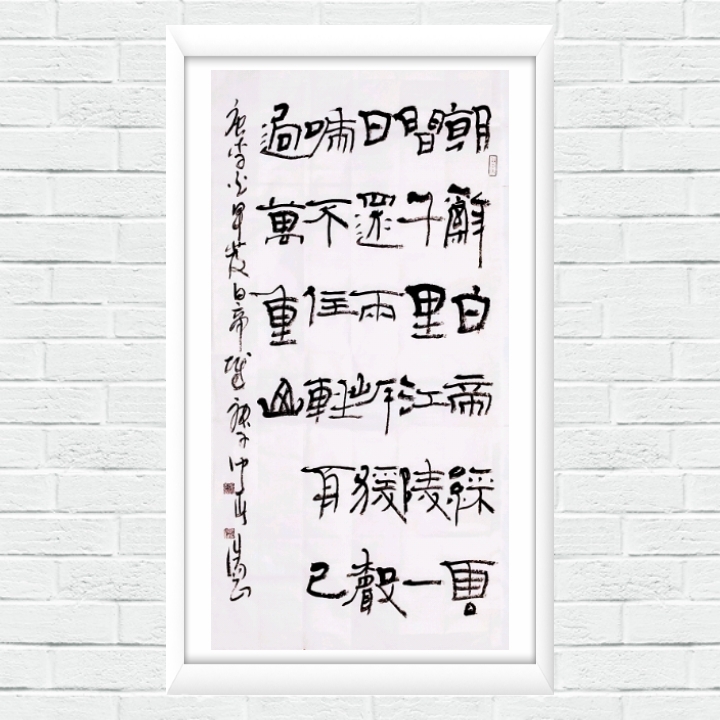 朝辭白帝綵雲
間千里江陵一
日還兩岸猿聲
啼不住輕舟已
過萬重山
唐李白早發白帝城庚子